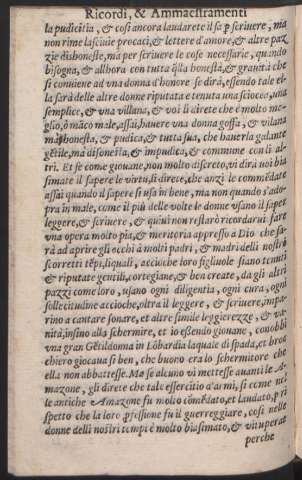 Ricordi, & Ammaestramenti
la pudicitia, & così ancora laudarete il sa ꝑ scriuere, ma
non rime lasciuie procaci, & lettere d'amore, & altre paz
zie dishoneste, ma per scriuere le cose necessarie, quando
bisogna, & allhora con tutta q̃lla honestà, & grauità che
si conuiene ad vna donna d'honore se dirà, essendo tale el-
la sarà delle altre donne riputata e tenuta una sciocca, una
semplice, & vna villana, & voi li direte che è molto me-
glio, ò mãco male, assai, hauere vna donna goffa, & vilana
ma honesta, & pudica, & tutta sua, che hauerla galante
gẽtile, ma disonesta, & impudica, & commune con li al-
tri. Et se come giouane, non molto discreto, vi dirà uoi bia
simate il sapere le virtù, li direte, che anzi le commẽdate
assai quando il sapere si usa in bene, ma non quando s'ado-
pra in male, come il più delle volte le donne vsano il saper
leggere, & scriuere, & quiui non restarò ricordarui fare
vna opera molto pia, & meritoria appresso a Dio che sa-
rà ad aprire gli occhi à molti padri, & madri delli nostri
scorretti tẽpi, liquali, accioche loro figliuole siano tenute
& riputate gentili, cortegiane, & ben create, da gli altri
pazzi come loro, vsano ogni diligentia, ogni cura, ogni
sollecitudine accioche, oltra il leggere, & scriuere, impa-
rino a cantare sonare, et altre simile leggierezze, & va-
nità, insino alla schermire, et io essendo giouane, conobbi
vna gran Gẽtildonna in Lõbardia laquale di spada, et broc
chiero giocaua si ben, che buono era lo schermitore che
ella non abbattesse. Ma se alcuno vi mettesse auanti le A-
mazone, gli direte che tale essercitio d'armi, si come nel
le antiche Amazone fu molto cõmẽdato, et laudato, ꝑ ri
spetto che la loro ꝓfessione fu il guerreggiare, così nelle
donne delli nostri tempi è molto biasimato, & vituperat
perche